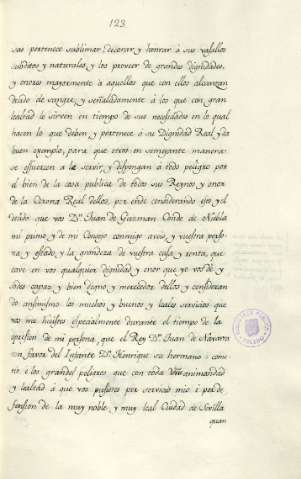 123
sas pertenece sublimar, decorar y honrar à sus vasallos
subditos y naturales, y los proveer de grandes dignidades,
y onores mayormente à aquellos que con ellos alcanzan
deudo de sangre, y señaladamente à los que con gran
lealtad le sirven en tiempo de sus necesidades en lo qual
hacen lo que deben y pertenece à su Dignidad Real, y da
buen exemplo, para que otros en semejante manera
se esfuercen a le servir, y dispongan à todo peligro por
el bien de la cosa publica de todos sus Reynos y onor
de la Corona Real dellos, por ende considerando esto y el
deudo que vos Dn. Juan de Guzman Conde de Niebla
mi primo, y de mi Consejo conmigo aveis, y vuestra perso-
na y estado, y la grandeza de vuestra casa, y renta, que
cave en vos qualquier dignidad y onor que yo vos dè, y
sodes capaz, y bien digno, y merecedor dellos, y consideran
do ansimismo los muchos y buenos, y leales servicios que
vos me hicistes especialmente durante el tiempo de la
opresion de mi persona, que el Rey Dn. Juan de Navarra
con favor del Infante Dn. Henrique su hermano come
tio è los grandes peligros que con toda animosidad
y lealtad à que vos pusistes por servicio mio è por de
fension de la muy noble, y muy leal Ciudad de Sevilla
quan